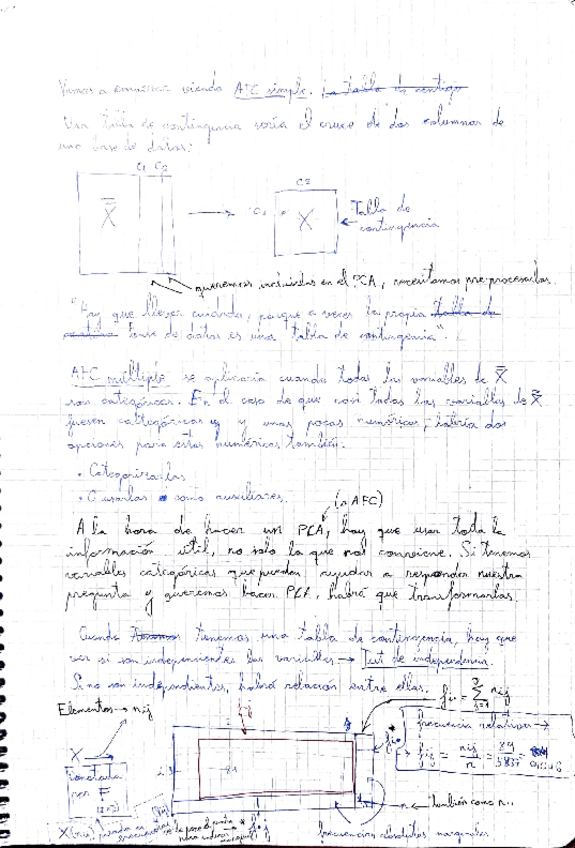 Vamos a empezar viendo AFC simple. La tabla de contigo
Una tabla de contingencia sería el cruce de dos columnas de
una base de datos:
C1 C2
C2
X
C1
X
Tabla de
contingencia
queremos incluirlas en el PCA, necesitamos pre-procesarlas.
"Hay que llevar cuidado, porque a veces la propia Tabla de
base de datos es una "tabla de contingencia".
AFC múltiple se aplicaría cuando todas las variables de X
son categóricas. En el caso de que casi todas las variables de X
fuesen categóricas y unas pocas numéricas, habría dos
opciones para estas numéricas también:
• Categorizarlas
• O usarlas como auxiliares.
(o AFC)
A la hora de hacer un PCA, hay que usar toda la
información útil, no solo la que nos conviene. Si tenemos
variables categóricas que puedan ayudar a responder nuestra
pregunta y queremos hacer PCA, habrá que transformarlas.
Cuando tenemos una tabla de contingencia, hay que
ver si son independientes las variables → Test de independencia.
Si no son independientes, habrá relación entre ellas.
Elementos → nij
frecuencia relativa →
fij = nij / n =
X
n ← También como n..
frecuencias absolutas marginales